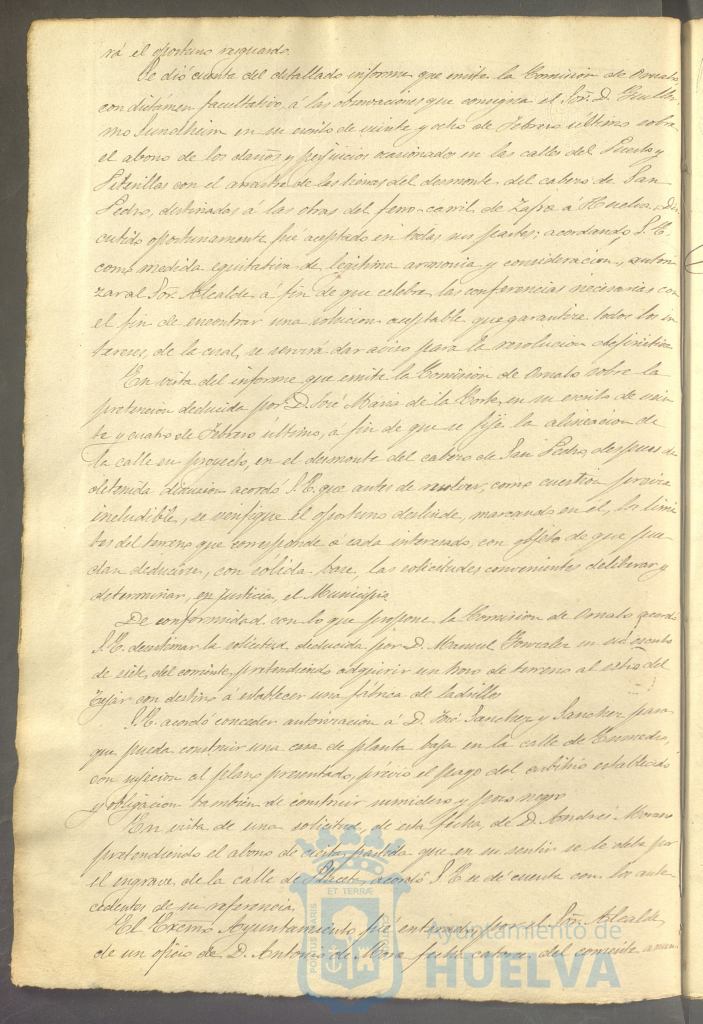 rá el oportuno resguardo.
Se dió cuenta del detallado informe que emite la Comision de Ornato
con dictámen facultativo, á las observaciones que consigna el Sor. D. Guiller-
mo Sundheim en su escrito de veinte y ocho de Febrero último sobre
el abono de los daños y perjuicios ocasionados en las calles del Puerto y
con el arrastre de las tierras del desmonte del cabezo de San
Pedro, destinadas á las obras del ferro-carril de Zafra á Huelva. Dis-
cutido oportunamente fué aceptado en todas sus partes; acordando S. E.
como medida equitativa de legítima armonia y consideracion, autori-
zar al Sor. Alcalde á fin de que celebre las conferencias necesarias con
el fin de encontrar una solucion aceptable que garantize todos los in-
tereses, de la cual, se servirá dar aviso para la resolucion definitiva
En vista del informe que emite la Comision de Ornato sobre la
pretencion deducida por D. José Maria de la Corte, en su escrito de vein-
te y cuatro de Febrero último, á fin de que se fije la alineacion de
la calle en proyecto, en el desmonte del cabezo de San Pedro, despues de
detenida discusion acordó S. E. que antes de resolver, como cuestion previa
ineludible, se verifique el oportuno deslinde, marcando en el, los limi-
tes del terreno que corresponde á cada interesado, con objeto de que pue-
dan deducirse, con sólida base, las solicitudes convenientes deliberar y
determinar, en justicia, el Municipio
De conformidad con lo que propone la Comision de Ornato acordó
S. E. desestimar la solicitud deducida por D. Manuel Gonzalez en su escrito
de siete, del corriente, pretendiendo adquirir un trozo de terreno al sitio del
Tejar con destino á establecer una fábrica de ladrillos
S. E. acordó conceder autorizacion á D. José Sanchez y Sanchez para
que pueda construir una casa de planta baja en la calle de
con sujecion al plano presentado, prévio el pago del arbitrio establecido
y obligacion tambien de construir sumidero y pozo negro
En vista de una solicitud, de esta fecha, de D. Andres Moreno
pretendiendo el abono de cierta partida que en su sentir se le debe por
el engrave de la calle de acordó S. E. se dé cuenta con los ante-
cedentes de su referencia.
El Excmo. Ayuntamiento fué enterado por el Sor. Alcalde
de un oficio de D. Antonio de Mora fecha catorce del corriente anun-
PORTUS MARIS
ET TERRÆ
Ayuntamiento de
HUELVA